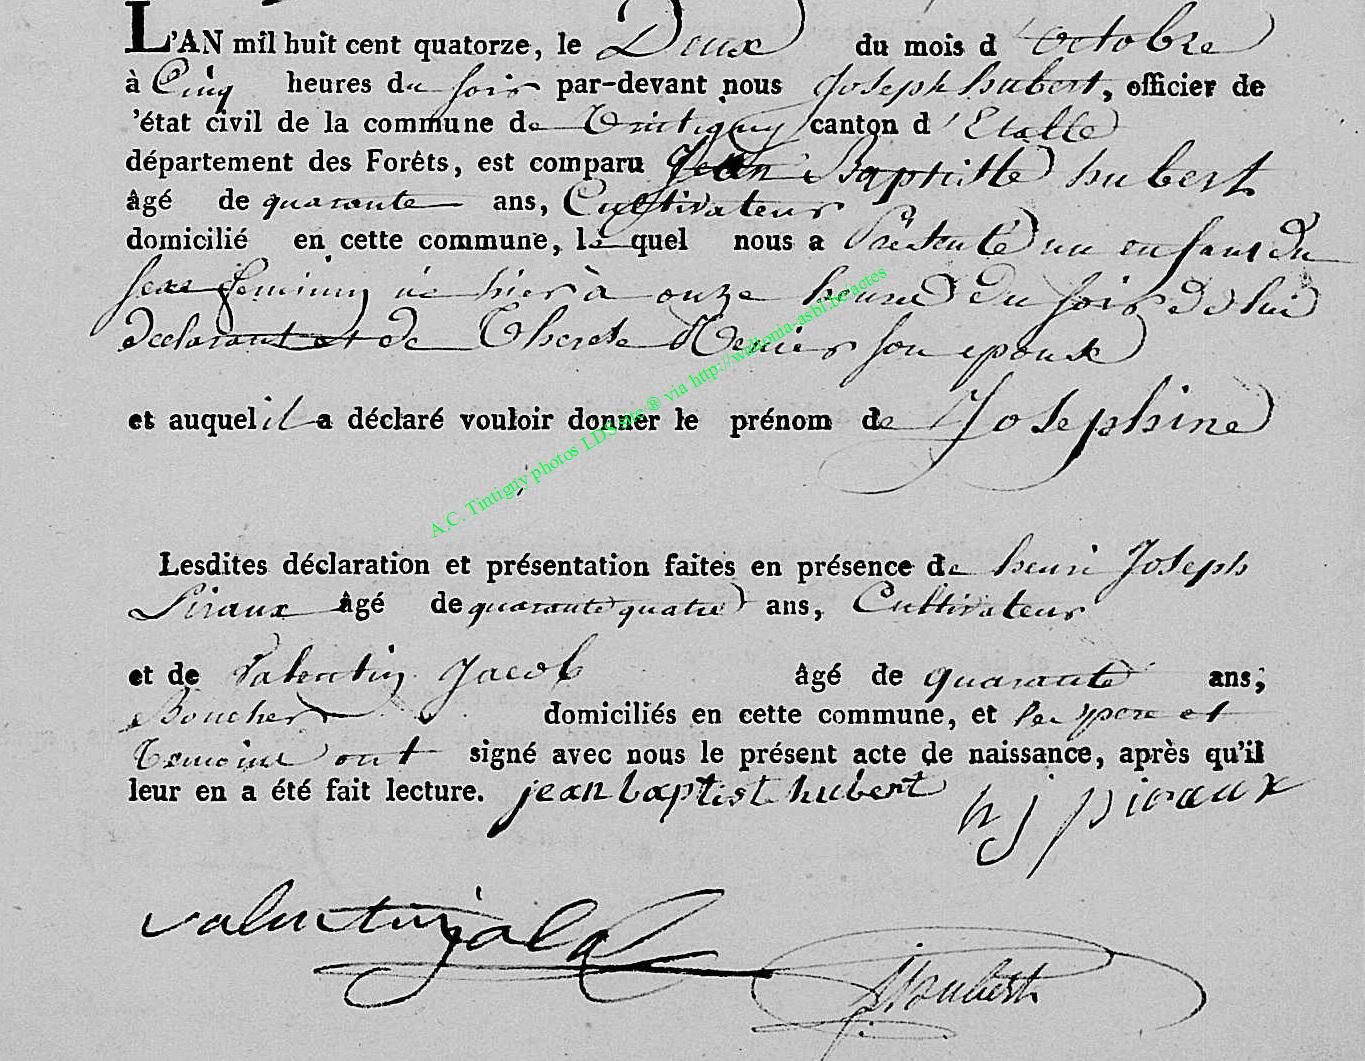 L'AN mil huit cent quatorze, le Deux du mois d'octobre
à Cinq heures du soir par-devant nous Joseph hubert, officier de
'état civil de la commune de Tintigny canton d'Etalle
département des Forêts, est comparu Jean Baptiste hubert
âgé de quarante ans, Cultivateur
domicilié en cette commune, le quel nous a Présenté un enfant du
sexe feminin né hier à onze heures du soir de lui
declarant et de Therese son epouse
et auquel il a déclaré vouloir donner le prénom de Josephine
A.C. Tintigny photos LDS site ® via http://wallonia-asbl.be/actes
Lesdites déclaration et présentation faites en présence de henri Joseph
Piraux âgé de quarante quatre ans, Cultivateur
et de Valentin Jacob âgé de quarante ans;
Boucher domiciliés en cette commune, et les pere et
temoins ont signé avec nous le présent acte de naissance, après qu'il
leur en a été fait lecture. jean baptist hubert h j piraux
valentin jacob
J. hubert